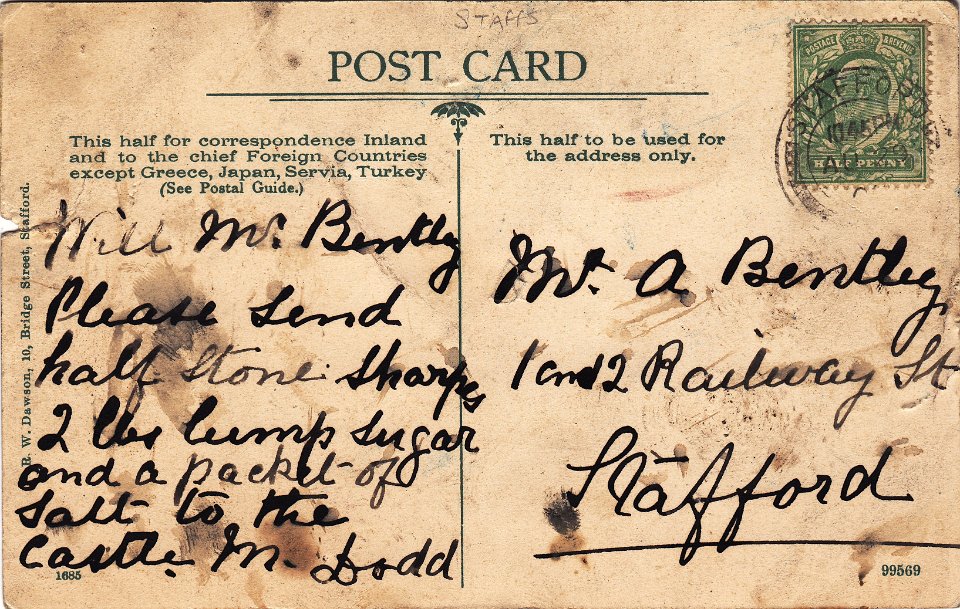 STAFFS
POST CARD
This half for correspondence Inland
and to the chief Foreign Countries
except Greece, Japan, Servia, Turkey
(See Postal Guide.)
This half to be used for
the address only.
POSTAGE & REVENUE
HALFPENNY
STAFFORD
10 45 PM
R. W. Dawson, 10, Bridge Street, Stafford.
Will Mr. Bentley
Please send
half Stone sharpes
2 lbs lump sugar
and a packet of
salt to the
Castle. M. Dodd
Mr. A Bentley
1 and 2 Railway St
Stafford
1685
99569